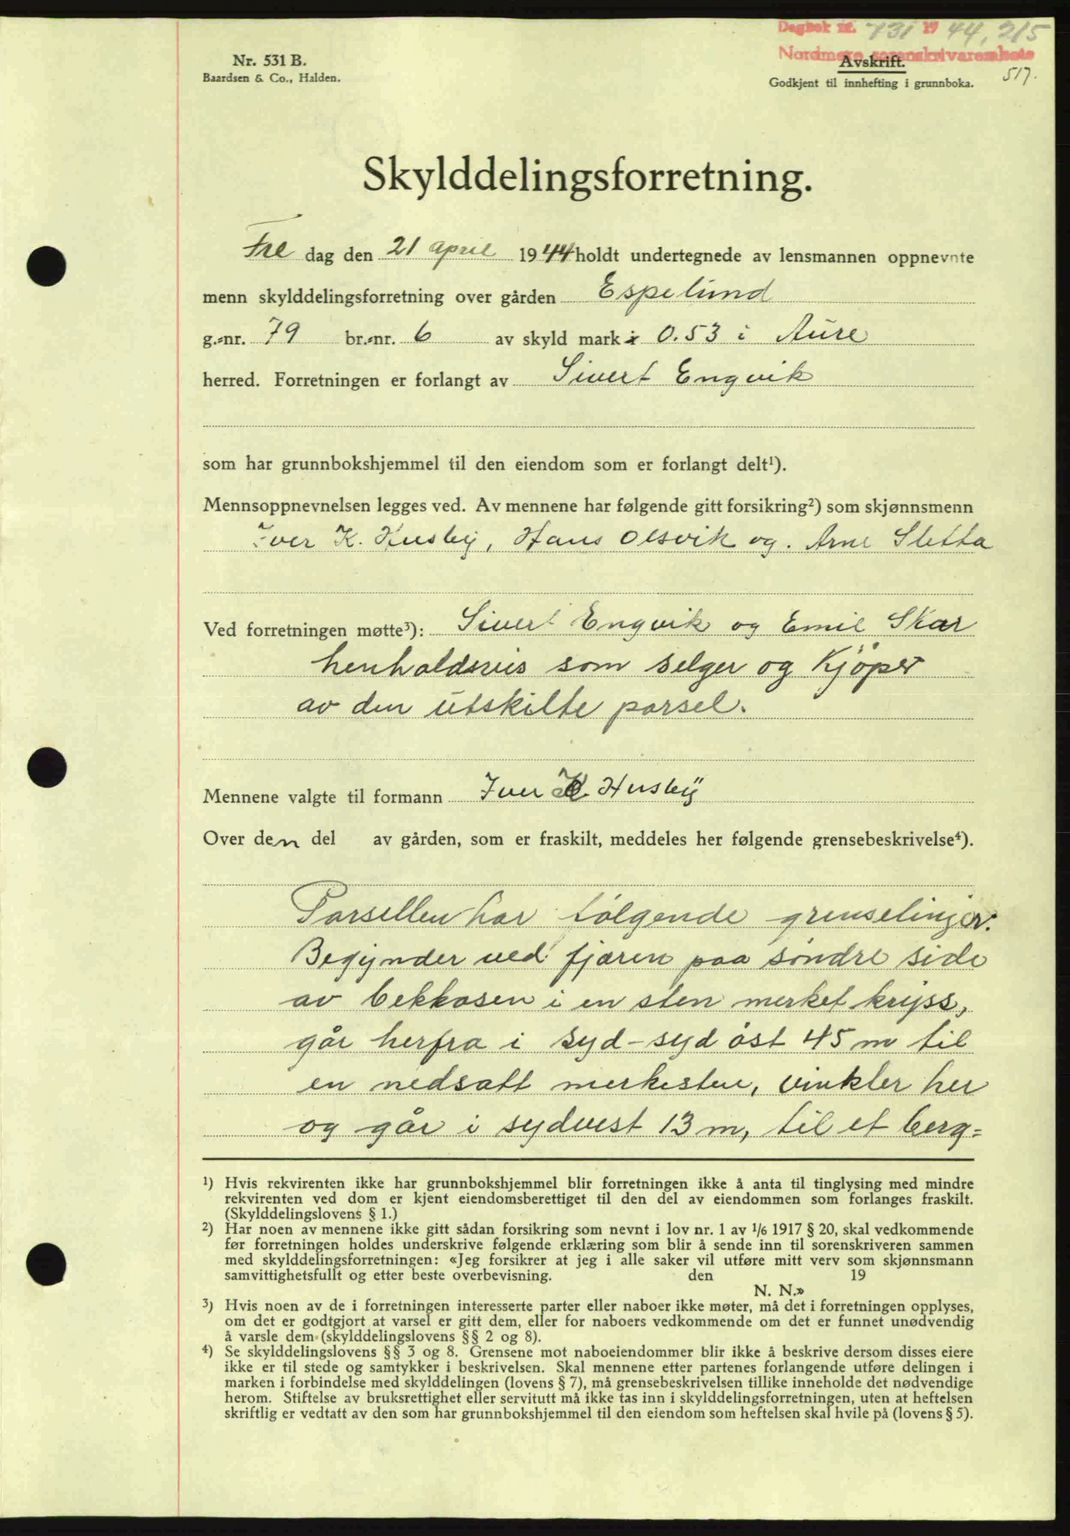 Dagbok nr. 731 19 44, 215
Nordmøre sorenskrivarembete
517.
Nr. 531 B.
Baardsen & Co., Halden.
Avskrift.
Godkjent til innhefting i grunnboka.
Skylddelingsforretning.
Fre dag den 21 april 1944 holdt undertegnede av lensmannen oppnevnte
menn skylddelingsforretning over gården Espelund
g.-nr. 79 br.-nr. 6 av skyld mark 0.53 i Aure
herred. Forretningen er forlangt av Sivert Engvik
som har grunnbokshjemmel til den eiendom som er forlangt delt¹).
Mennsoppnevnelsen legges ved. Av mennene har følgende gitt forsikring²) som skjønnsmenn
Iver K. Husby, Hans Olsvik og. Arne Sletta
Ved forretningen møtte³): Sivert Engvik og Emil Skar
henholdsvis som selger og Kjöper
av den utskilte parsel.
Mennene valgte til formann Iver K. Husby
Over den del av gården, som er fraskilt, meddeles her følgende grensebeskrivelse⁴).
Parsellen har følgende grenselinjer:
Begynder ved fjæren paa söndre side
av bekkosen i en sten merket kryss,
går herfra i syd-syd öst 45 m til
en nedsatt merkesten, vinkler her
og går i sydvest 13 m, til et berg=
¹) Hvis rekvirenten ikke har grunnbokshjemmel blir forretningen ikke å anta til tinglysing med mindre
rekvirenten ved dom er kjent eiendomsberettiget til den del av eiendommen som forlanges fraskilt.
(Skylddelingslovens § 1.)
²) Har noen av mennene ikke gitt sådan forsikring som nevnt i lov nr. 1 av 1/6 1917 § 20, skal vedkommende
før forretningen holdes underskrive følgende erklæring som blir å sende inn til sorenskriveren sammen
med skylddelingsforretningen: «Jeg forsikrer at jeg i alle saker vil utføre mitt verv som skjønnsmann
samvittighetsfullt og etter beste overbevisning. den 19
N. N.»
³) Hvis noen av de i forretningen interesserte parter eller naboer ikke møter, må det i forretningen opplyses,
om det er godtgjort at varsel er gitt dem, eller for naboers vedkommende om det er funnet unødvendig
å varsle dem (skylddelingslovens §§ 2 og 8).
⁴) Se skylddelingslovens §§ 3 og 8. Grensene mot naboeiendommer blir ikke å beskrive dersom disses eiere
ikke er til stede og samtykker i beskrivelsen. Skal mennene etter partenes forlangende utføre delingen i
marken i forbindelse med skylddelingen (lovens § 7), må grensebeskrivelsen tillike inneholde det nødvendige
herom. Stiftelse av bruksrettighet eller servitutt må ikke tas inn i skylddelingsforretningen, uten at heftelsen
skriftlig er vedtatt av den som har grunnbokshjemmel til den eiendom som heftelsen skal hvile på (lovens § 5).